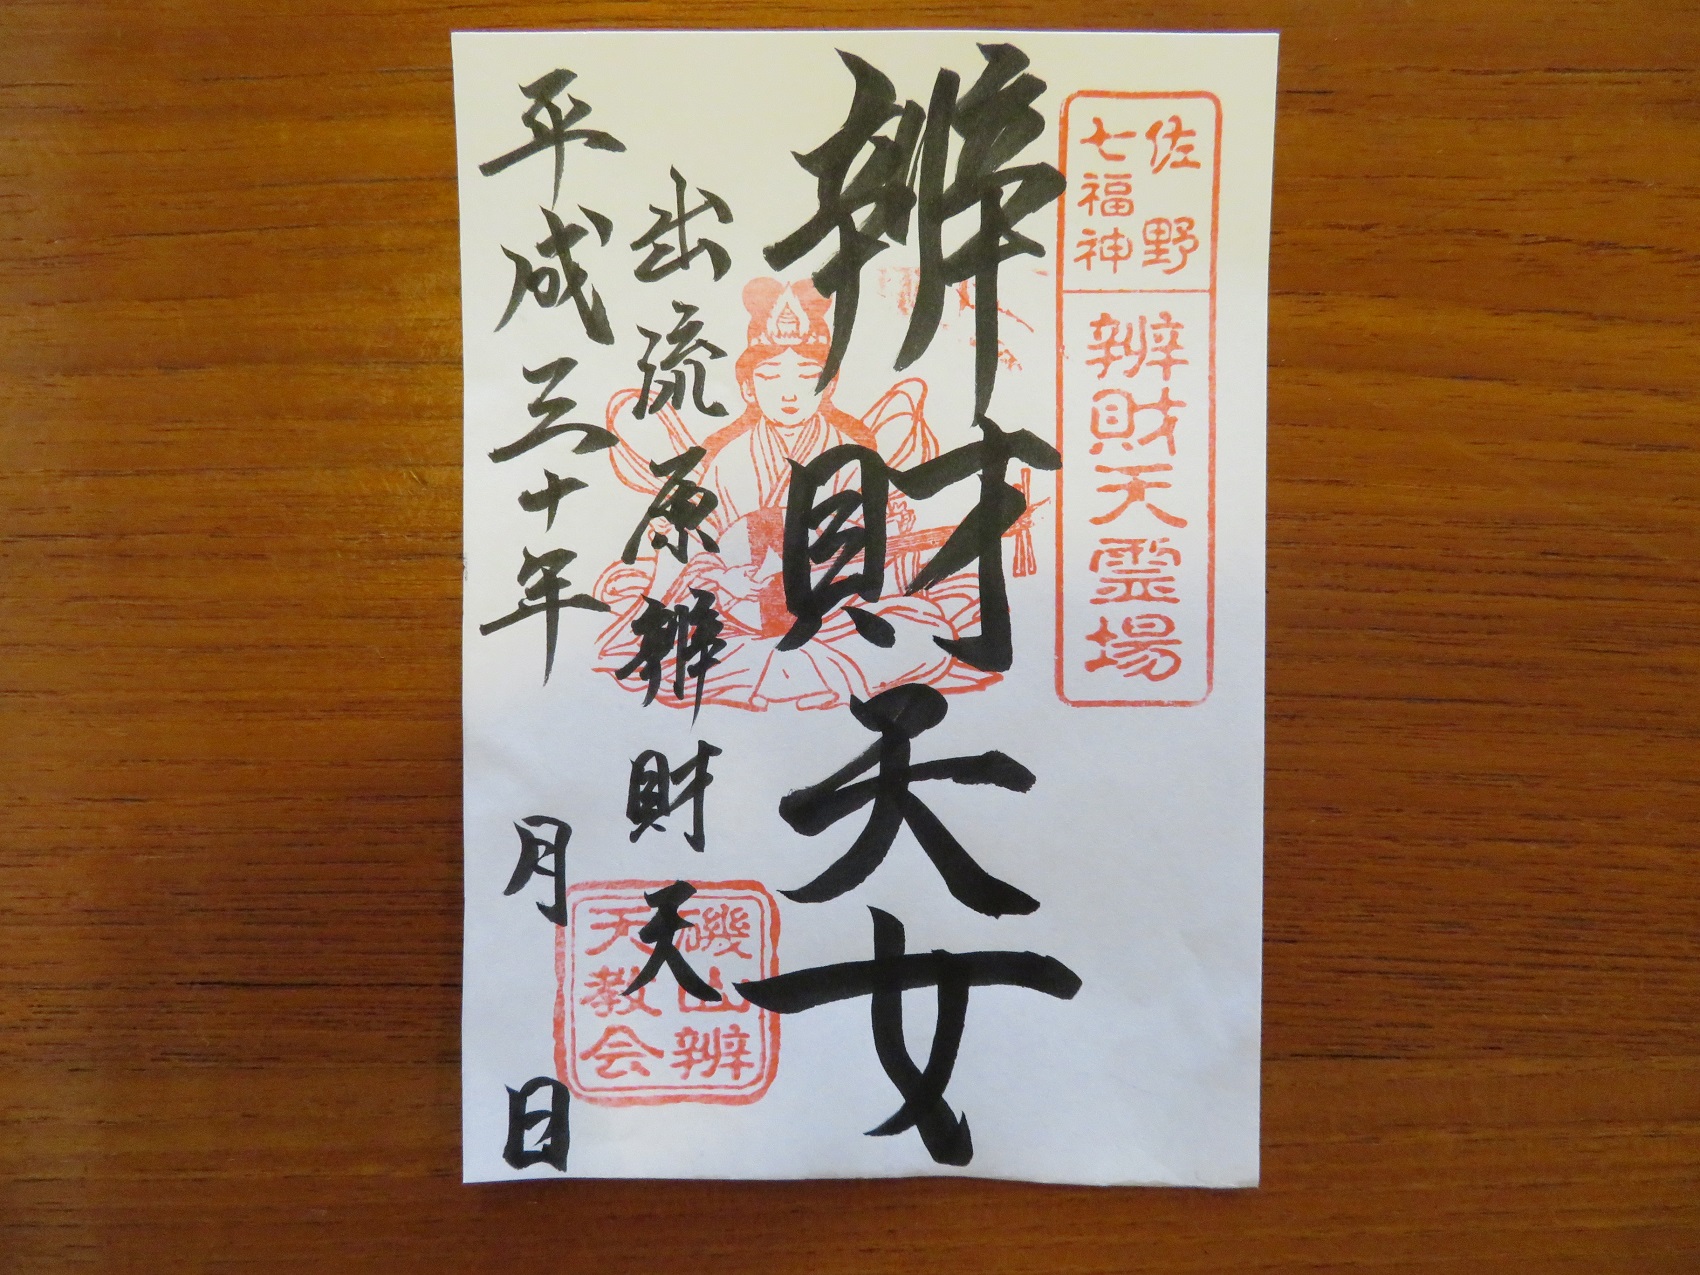 佐野
七福神
辨財天霊場
辨財天女
出流原辨財天
磯山辨
天教会
平成三十年 月 日